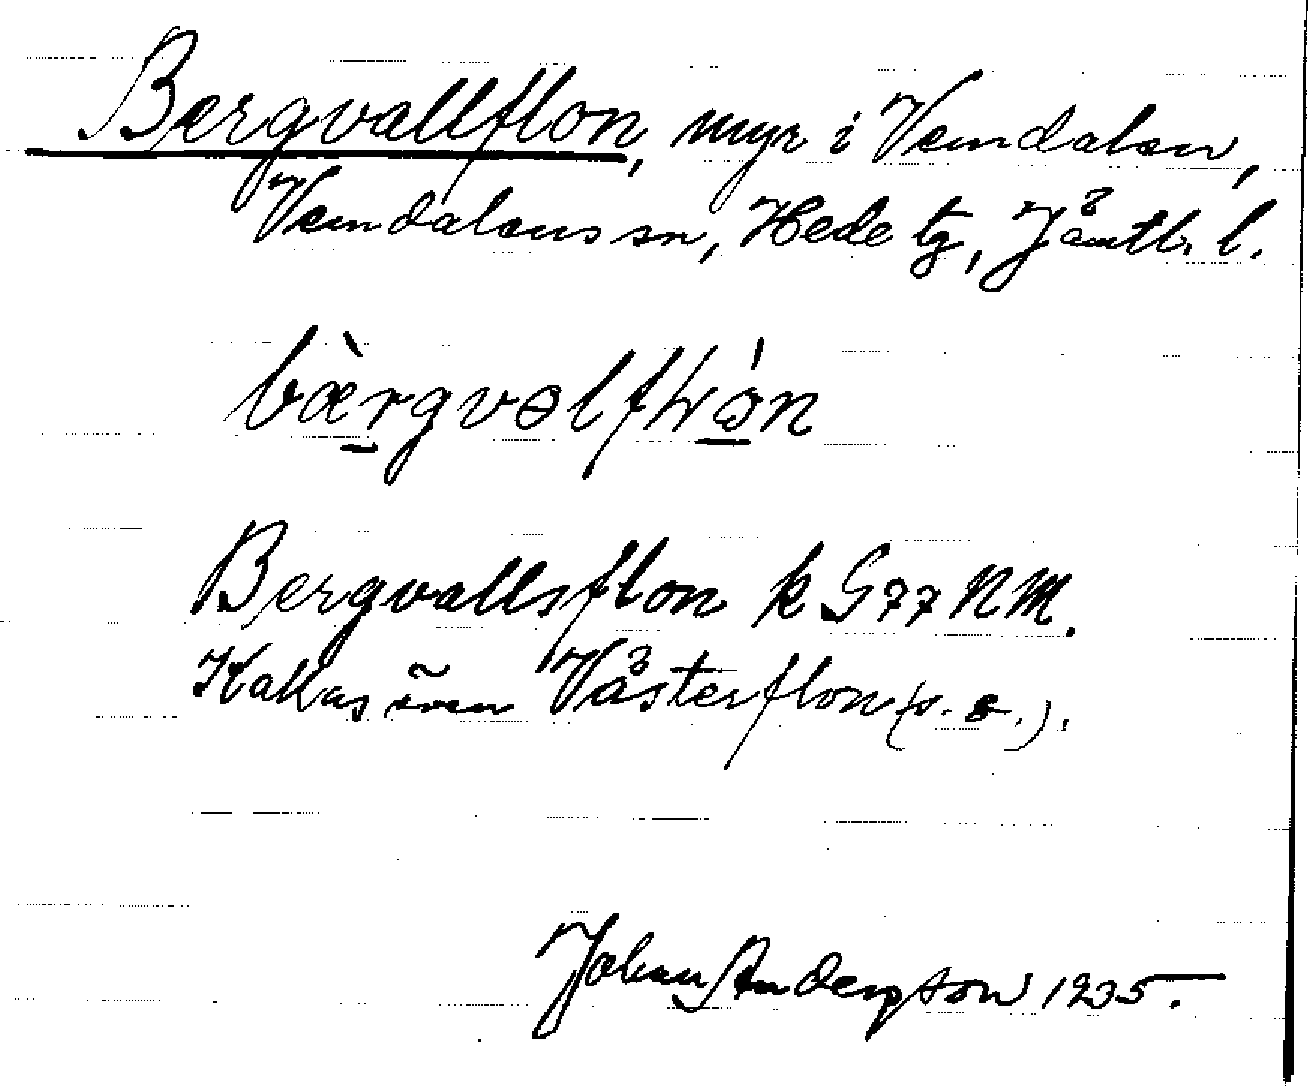 Bergvallflon, myr i Vemdalen,
Vemdalens sn, Hede tg, Jämtl. l.
bæ̀rgvəlfɫón
Bergvallsflon k G77 NM.
Kallas även Västerflon (s. o.).
Johan Anderson 1935.